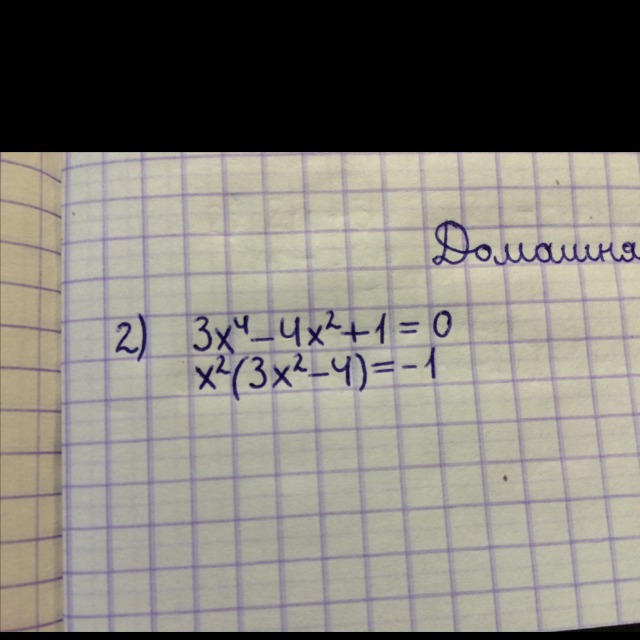 Домашня
2) 3x⁴-4x²+1=0
x²(3x²-4)=-1